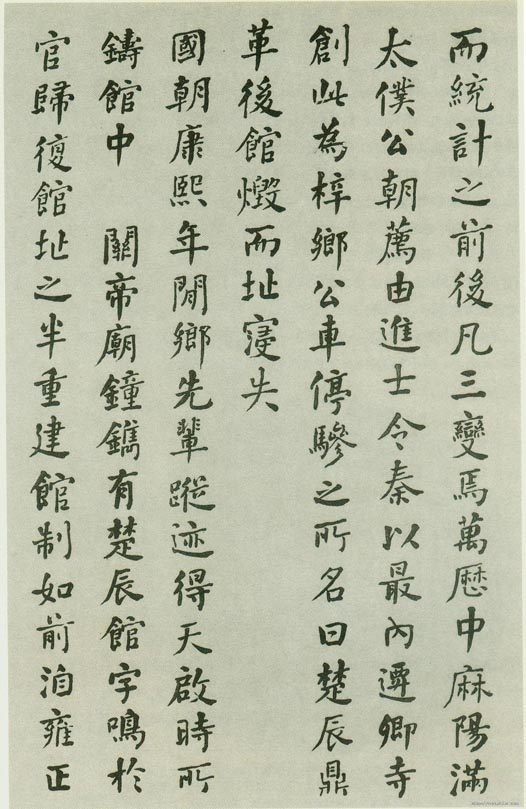 而統計之前後凡三變焉萬歷中麻陽滿
太僕公朝薦由進士令秦以最內遷卿寺
創此為梓鄉公車停驂之所名曰楚辰鼎
革後館燬而址寖失
國朝康熙年閒鄉先輩蹤迹得天啟時所
鑄館中 關帝廟鐘鐫有楚辰館字鳴於
官歸復館址之半重建館制如前洎雍正